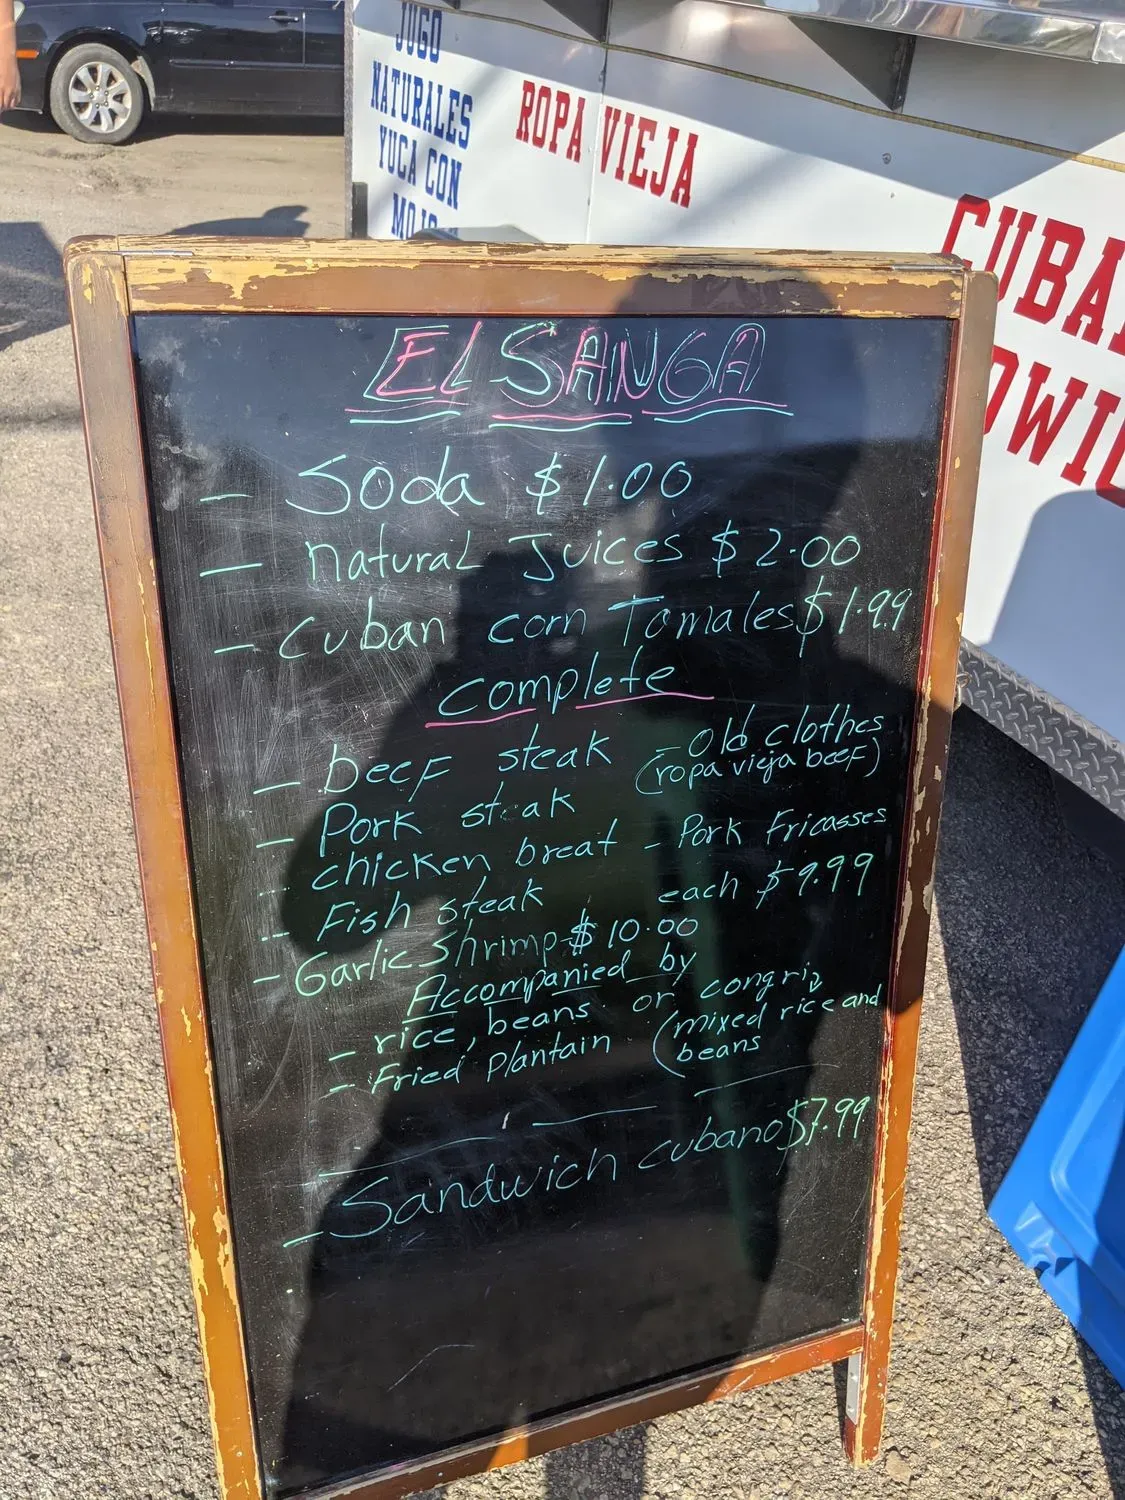 JUGO
NATURALES
YUCA CON
MOJO
ROPA VIEJA
CUBA
EL SANGA
- Soda $1.00
- natural Juices $2.00
- cuban corn Tamales $1.99
complete
- beef steak - old clothes
(ropa vieja beef)
- Pork steak
- chicken breat - Pork Fricasses
- Fish steak each $9.99
- Garlic Shrimp $10.00
Accompanied by
- rice, beans or congris
- Fried Plantain (mixed rice and
beans
- Sandwich cubano $7.99